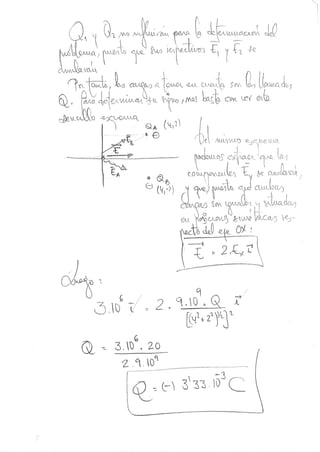 Q₁ y Q₂ no influirán para la determinación del
problema, puesto que sus respectivos E⃗₁ y E⃗₂ se
anularán
Por tanto, las cargas a tomar en cuenta son las llamadas
Q. Para determinar su signo, nos basta con ver este
sencillo esquema
Q_A (4,2)
⊖
E⃗_B
E⃗
E⃗_A
Q_B
⊖ (4,-2)
Del mismo esquema
podemos extraer que las
componentes E⃗y se anularán,
y que, puesto que ambas
cargas son iguales y situadas
en posiciones simétricas res-
pecto del eje OX:
E⃗ = 2·Eₓ i⃗
Luego:
3·10⁶ i⃗ = 2 · 9·10⁹ · Q / [(4²+2²)^½]² i⃗
Q = 3·10⁶ · 20 / 2·9·10⁹
Q = (-) 3'33·10⁻³ C